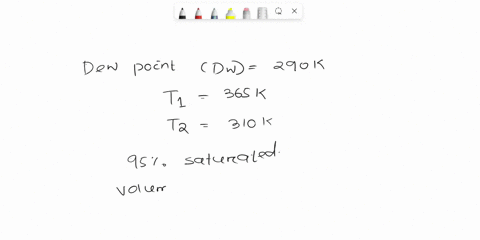 Dew point (Dw) = 290K
T1 = 365K
T2 = 310K
95% saturated.
volum